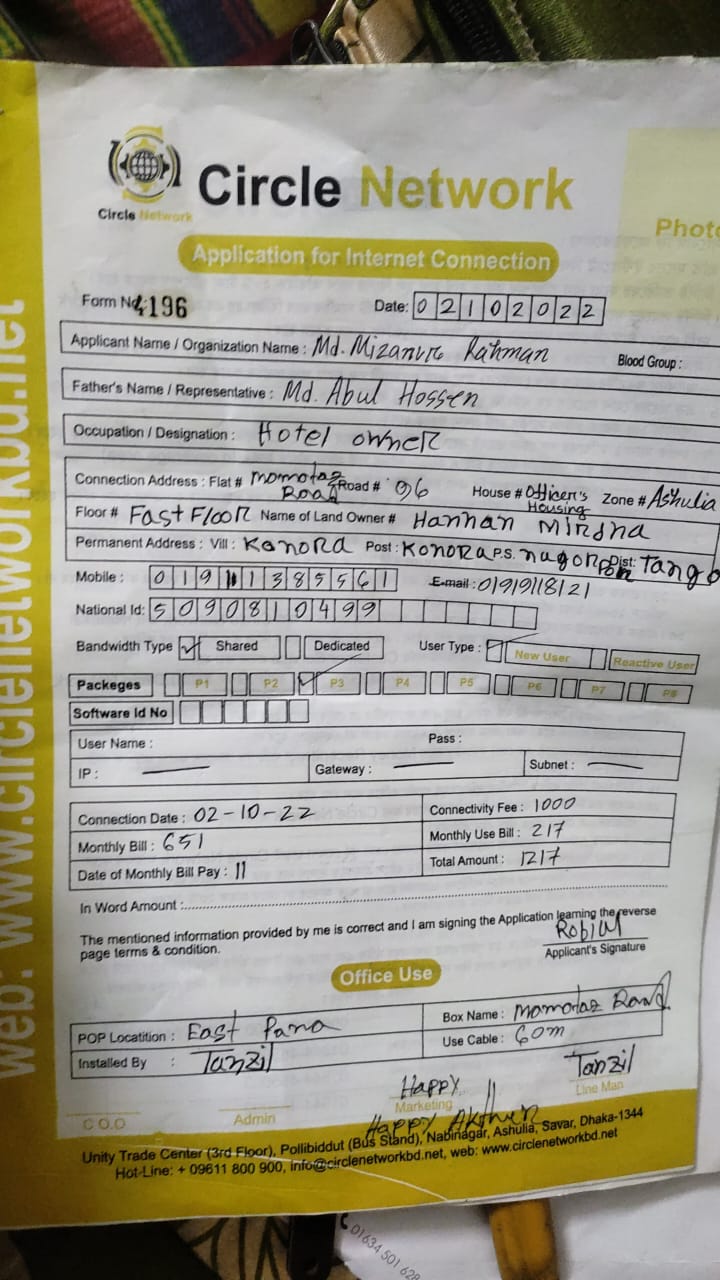 Circle Network
Circle Network
Photo
Application for Internet Connection
Form No: 4196
Date: 02102022
Applicant Name / Organization Name : Md. Mizanur Rahman Blood Group :
Father's Name / Representative : Md. Abul Hossen
Occupation / Designation : Hotel owner
Connection Address : Flat # momotaz Road Road # 96 House # Officer's Housing Zone # Ashulia
Floor # Fast Floor Name of Land Owner # Hannan Mirdha
Permanent Address : Vill : Konora Post : Konora P.S. nagorpor Dist: Tang
Mobile : 01911385561 E-mail : 01919118121
National Id: 5090810499
Bandwidth Type Shared Dedicated User Type : New User Reactive User
Packeges P1 P2 P3 P4 P5 P6 P7 P8
Software Id No
User Name : Pass :
IP : Gateway : Subnet :
Connection Date : 02-10-22 Connectivity Fee : 1000
Monthly Bill : 651 Monthly Use Bill : 217
Date of Monthly Bill Pay : 11 Total Amount : 1217
In Word Amount :
The mentioned information provided by me is correct and I am signing the Application learning the reverse
page terms & condition.
Robiul
Applicant's Signature
Office Use
POP Locatition : East Para Box Name : Momotaz Road
Installed By : Tanzil Use Cable : 60m
Happy Tanzil
C O.O Admin Marketing Line Man
Happy Akther
Unity Trade Center (3rd Floor), Pollibiddut (Bus Stand), Nabinagar, Ashulia, Savar, Dhaka-1344
Hot-Line: + 09611 800 900, info@circlenetworkbd.net, web: www.circlenetworkbd.net
web: www.circlenetworkbd.net
01634 501 628